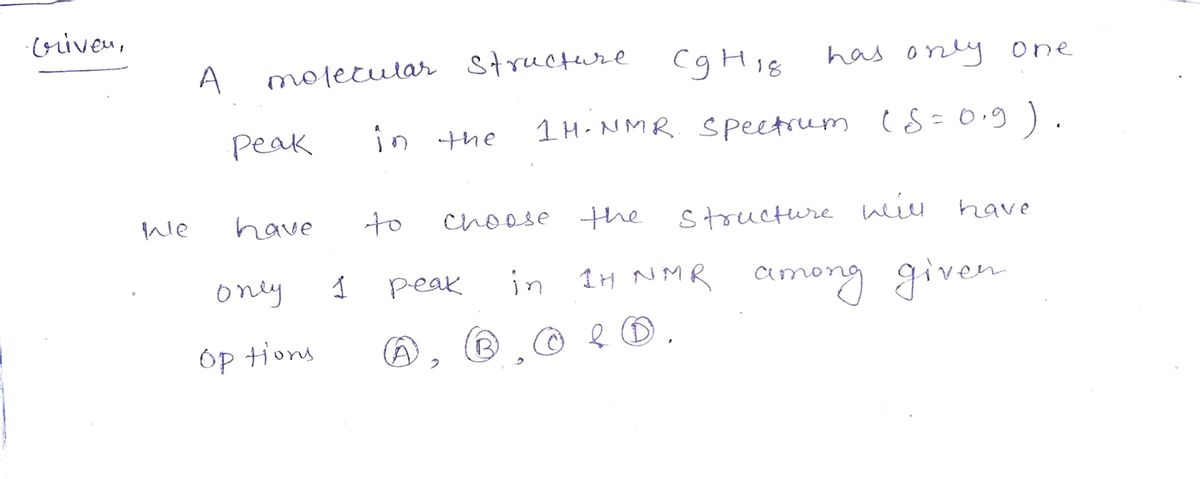 Given,
A molecular structure C9H18 has only one
peak in the 1H-NMR spectrum (δ=0.9).
We have to choose the structure will have
only 1 peak in 1H NMR among given
options Ⓐ, Ⓑ, Ⓒ & Ⓓ.